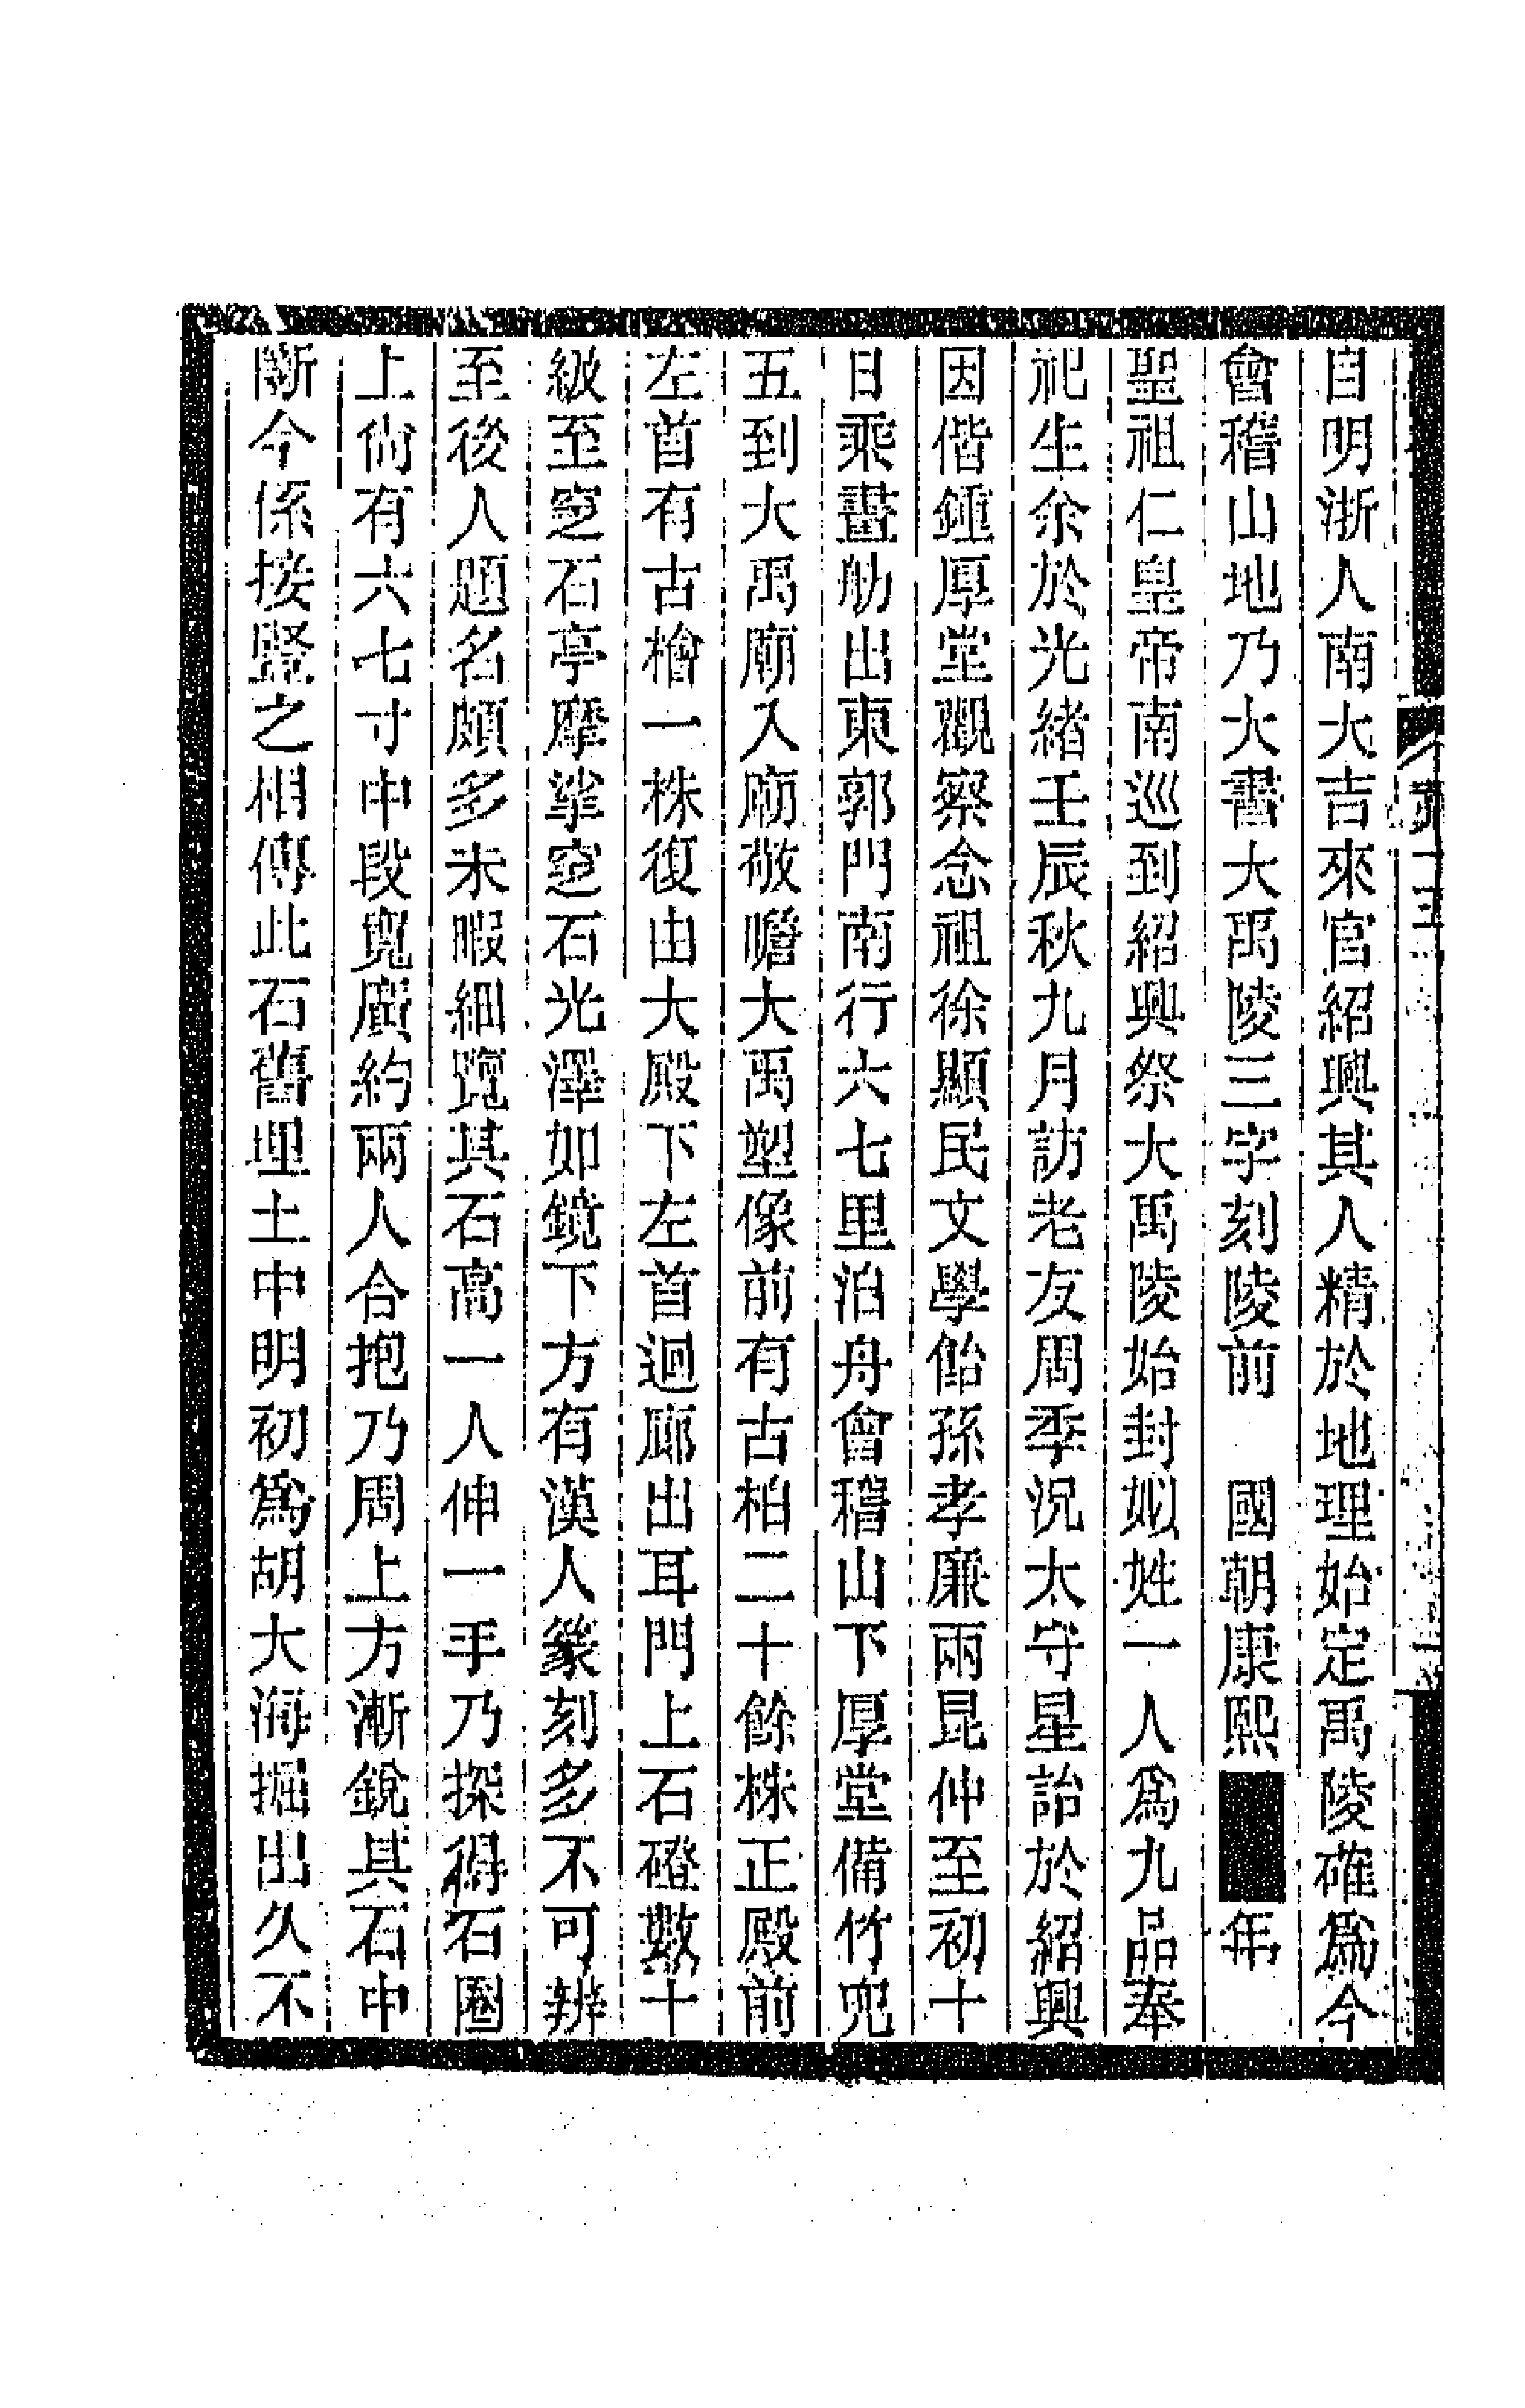 自明浙人南大吉來官紹興其人精於地理始定禹陵確爲今
會稽山地乃大書大禹陵三字刻陵前　國朝康熙■■年
聖祖仁皇帝南巡到紹興祭大禹陵始封姒姓一人爲九品奉
祀生余於光緒壬辰秋九月訪老友周季況太守星詒於紹興
因偕鍾厚堂觀察念祖徐顯民文學飴孫孝廉兩昆仲至初十
日乘畫舫出東郭門南行六七里泊舟會稽山下厚堂備竹兜
五到大禹廟入廟敬瞻大禹塑像前有古柏二十餘株正殿前
左首有古檜一株復由大殿下左首迴廊出耳門上石磴數十
級至窆石亭摩挲窆石光澤如鏡下方有漢人篆刻多不可辨
至後人題名頗多未暇細覽其石高一人伸一手乃探得石圈
上尙有六七寸中段寬廣約兩人合抱乃周上方漸銳其石中
斷今係接竪之相傳此石舊埋土中明初爲胡大海掘出久不